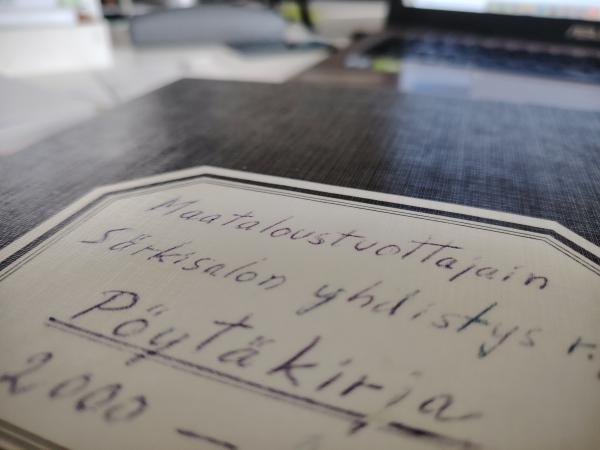 Maataloustuottajain
Särkisalon yhdistys r.
Pöytäkirja
2000 —